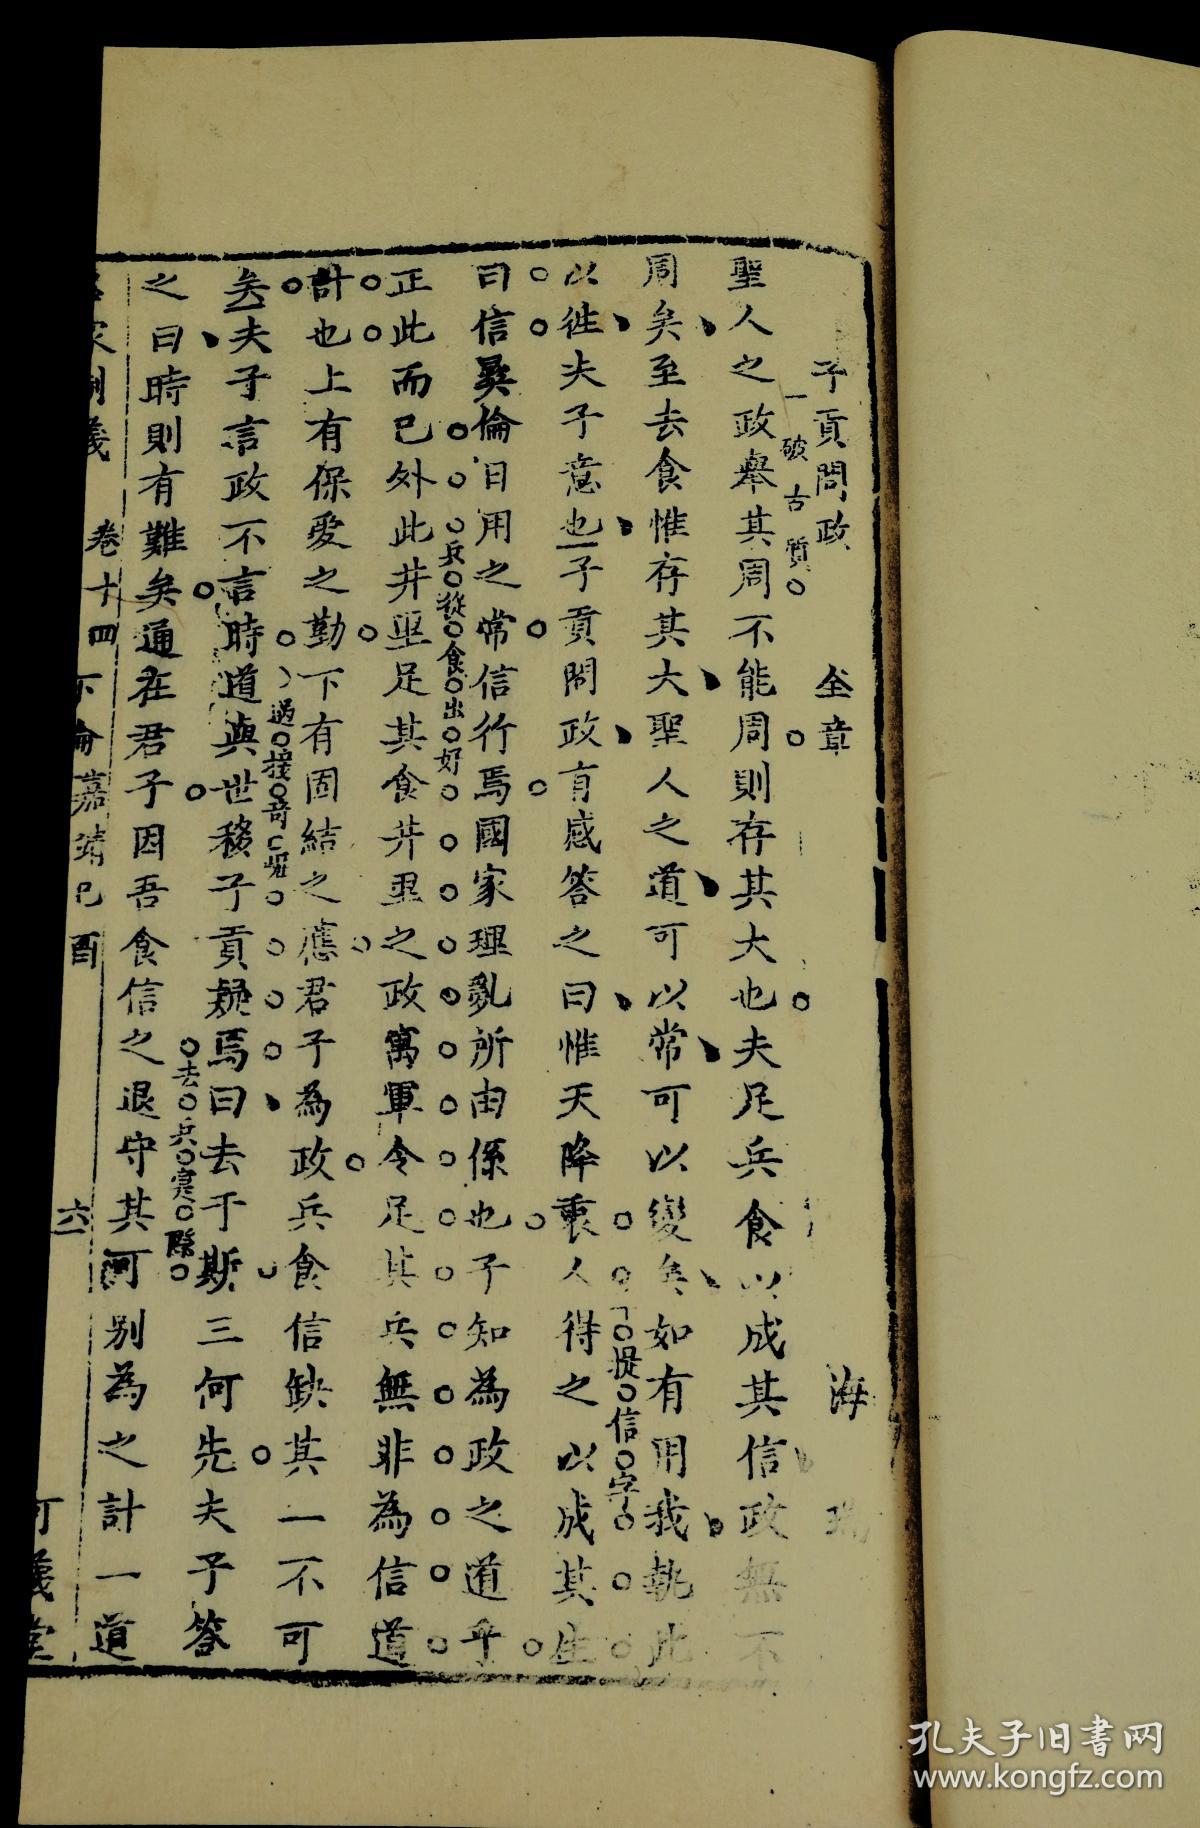 子貢問政 全章 海瑞
一破古質
聖人之政舉其周不能周則存其大也夫足兵食以成其信政無不
周矣至去食惟存其大聖人之道可以常可以變矣如有用我執此
以徃夫子意也子貢問政有感答之曰惟天降衷人得之以成其生
提信字
曰信彝倫日用之常信行焉國家理亂所由係也子知為政之道乎
兵從食出好
正此而已外此井里足其食井里之政寓軍令足其兵無非為信道
計也上有保愛之勤下有固結之應君子為政兵食信缺其一不可
過接奇崛
矣夫子言政不言時道與世移子貢疑焉曰去于斯三何先夫子答
去兵寔際
之曰時則有難矣通在君子因吾食信之退守其可別為之計一道
名家制義 卷十四 下論 嘉靖己酉 六 可儀堂
孔夫子旧书网
www.kongfz.com